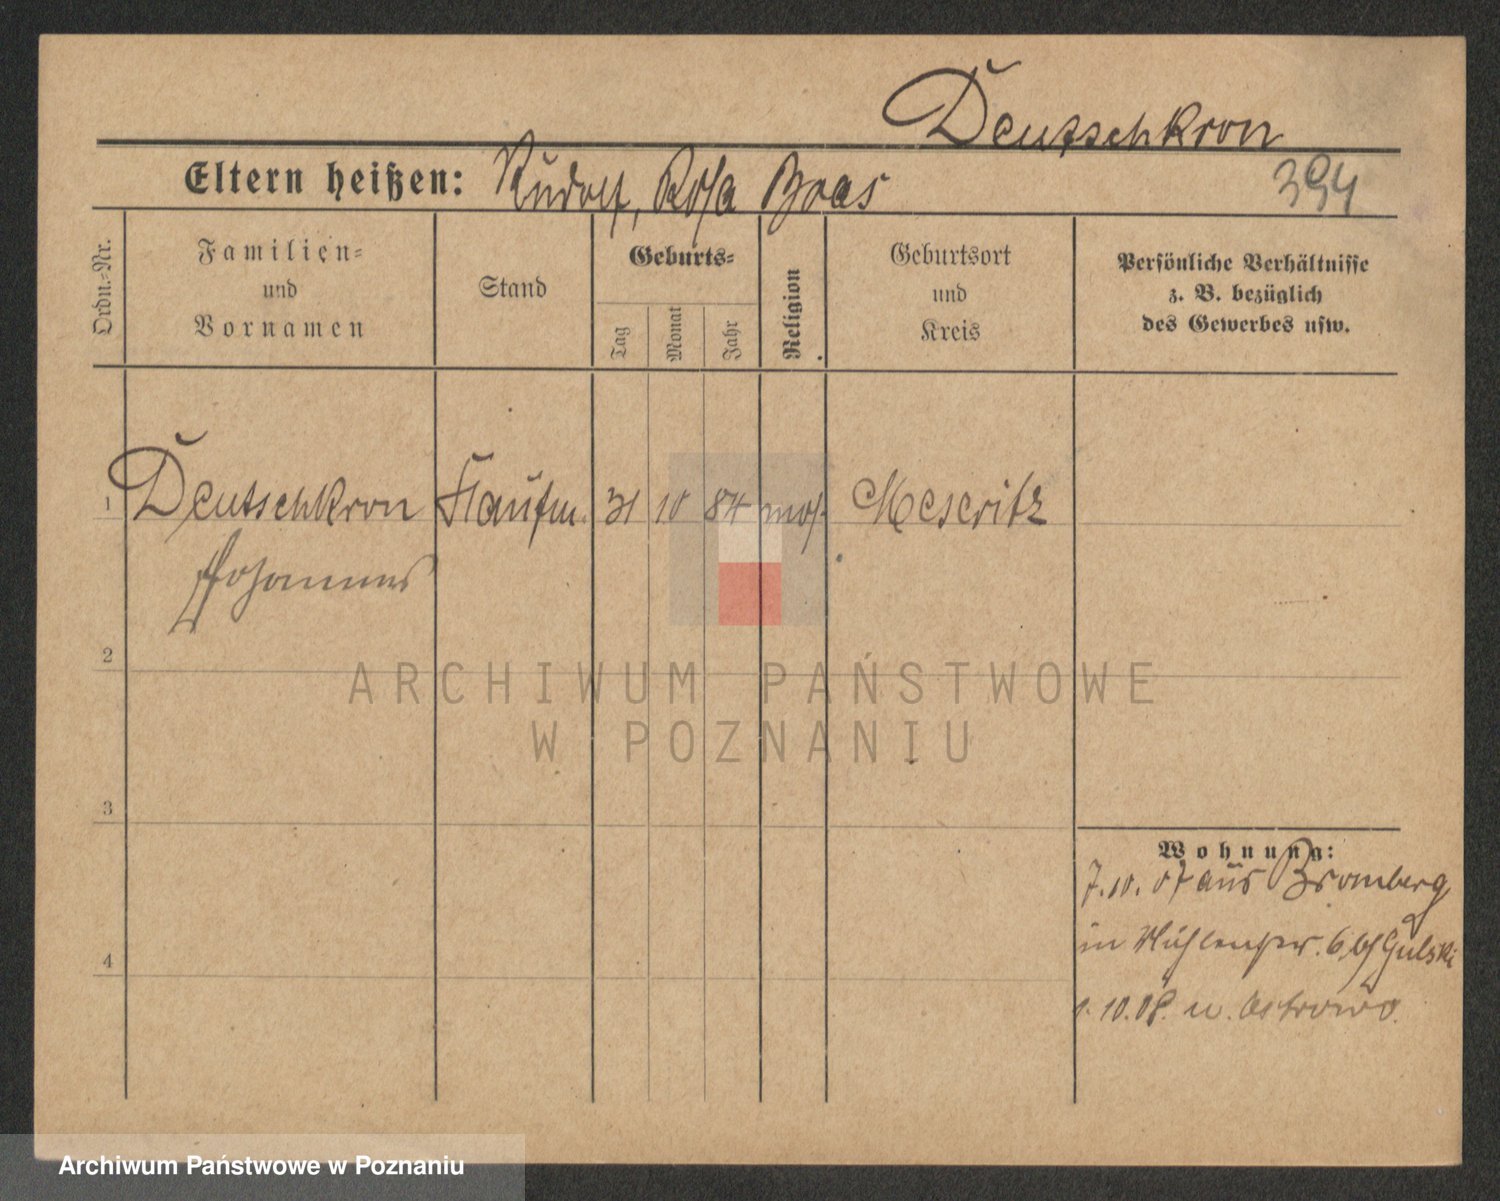 Deutschkron
Eltern heißen: Rudolf, Rosa Boas
394
Ordn.-Nr.
Familien-
und
Vornamen
Stand
Geburts-
Tag
Monat
Jahr
Religion
Geburtsort
und
Kreis
Persönliche Verhältnisse
z. B. bezüglich
des Gewerbes usw.
1 Deutschkron Kaufm. 31 10 84 mos. Meseritz
Johannes
2
3
4
Wohnung:
7.10.07 aus Bromberg
in Mühlenstr. 6 b/ Gulski
1.10.08. n. Ostrowo.
ARCHIWUM PAŃSTWOWE
W POZNANIU
Archiwum Państwowe w Poznaniu